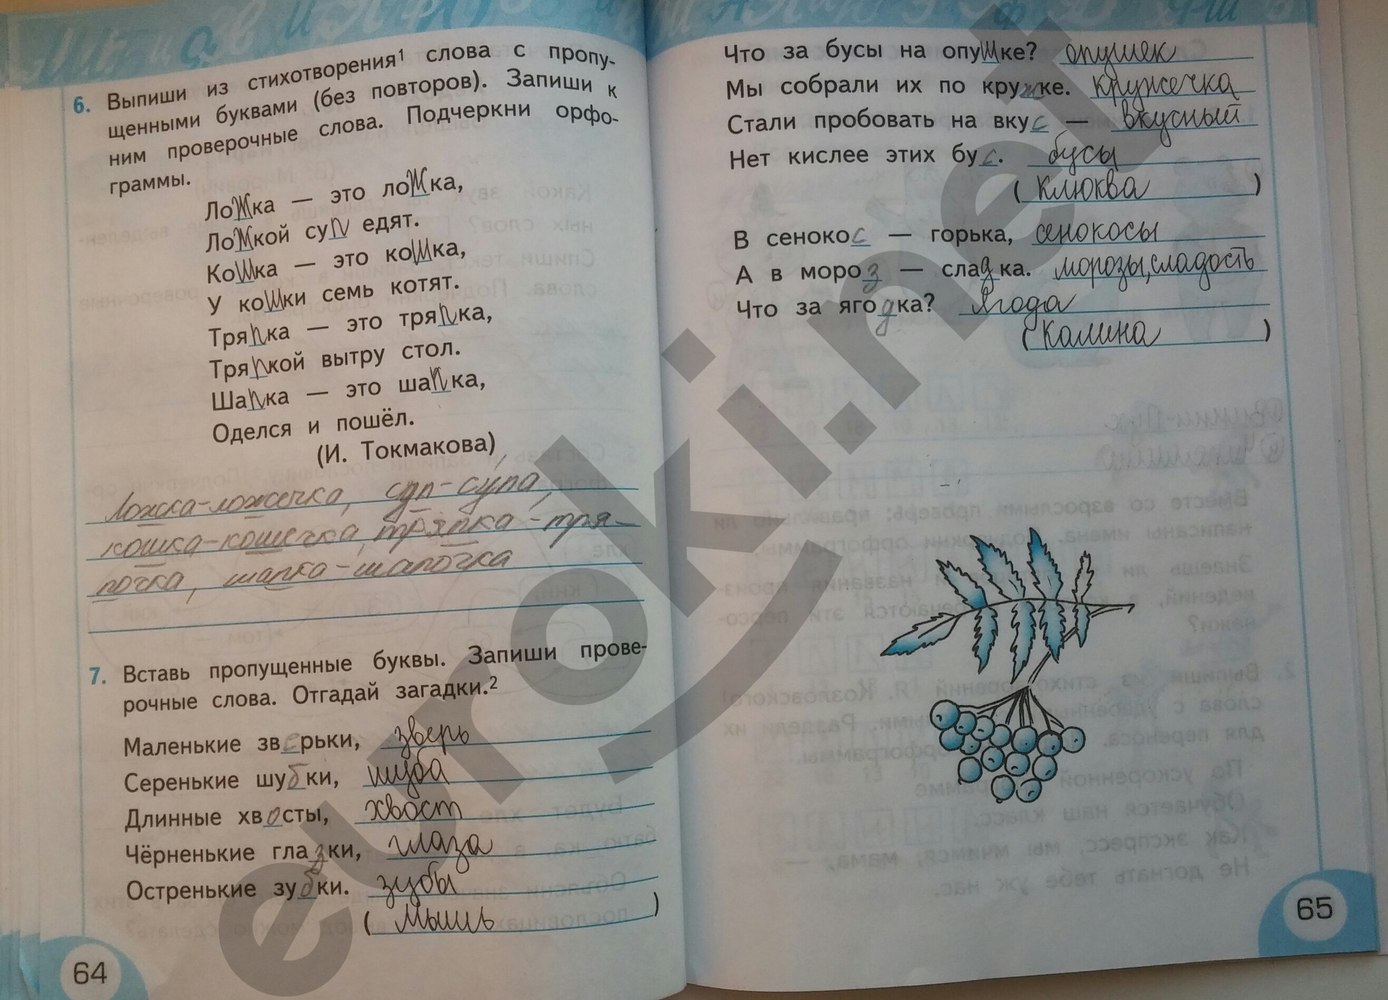 6. Выпиши из стихотворения¹ слова с пропу-
щенными буквами (без повторов). Запиши к
ним проверочные слова. Подчеркни орфо-
граммы.
Ложка — это ложка,
Ложкой суп едят.
Кошка — это кошка,
У кошки семь котят.
Тряпка — это тряпка,
Тряпкой вытру стол.
Шапка — это шапка,
Оделся и пошёл.
(И. Токмакова)
Ложка-ложечка, суп-супа,
кошка-кошечка, тряпка-тря-
почка, шапка-шапочка
7. Вставь пропущенные буквы. Запиши прове-
рочные слова. Отгадай загадки.²
Маленькие зверьки, зверь
Серенькие шубки, шуба
Длинные хвосты, хвост
Чёрненькие глазки, глаза
Остренькие зубки. зубы
(мышь)
64
Что за бусы на опушке? опушек
Мы собрали их по кружке. кружечка
Стали пробовать на вкус — вкусный
Нет кислее этих бус. бусы
(клюква)
В сенокос — горька, сенокосы
А в мороз — сладка. морозы, сладость
Что за ягодка? Ягода
(Калина)
65
euroki.net